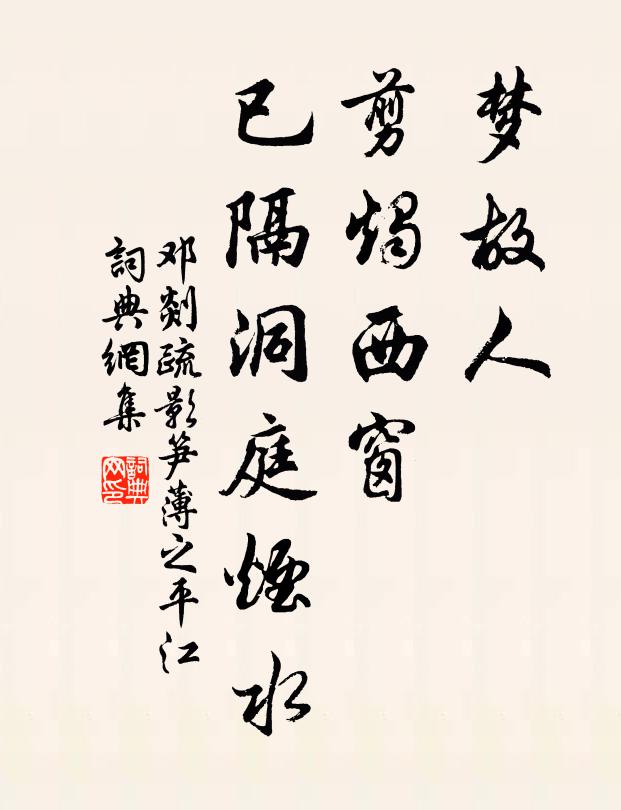 梦故人
剪烛西窗
已隔洞庭烟水
邓剡疏影笋薄之平江
詞典網集
詞典网印